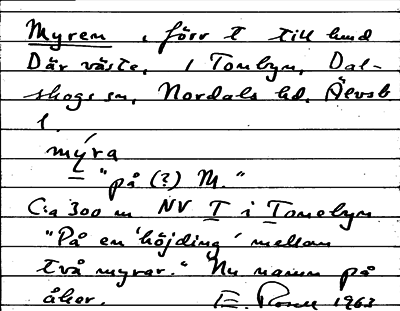 Myren, förr t till hmd
Där väste, i Tombyn, Dal-
skogs sn, Nordals hd. Älvsb
l.
mýra
"på (?) M."
C:a 300 m NV T i Tombyn
"På en 'höjding' mellan
två myrar." Nu namn på
åker. 1963